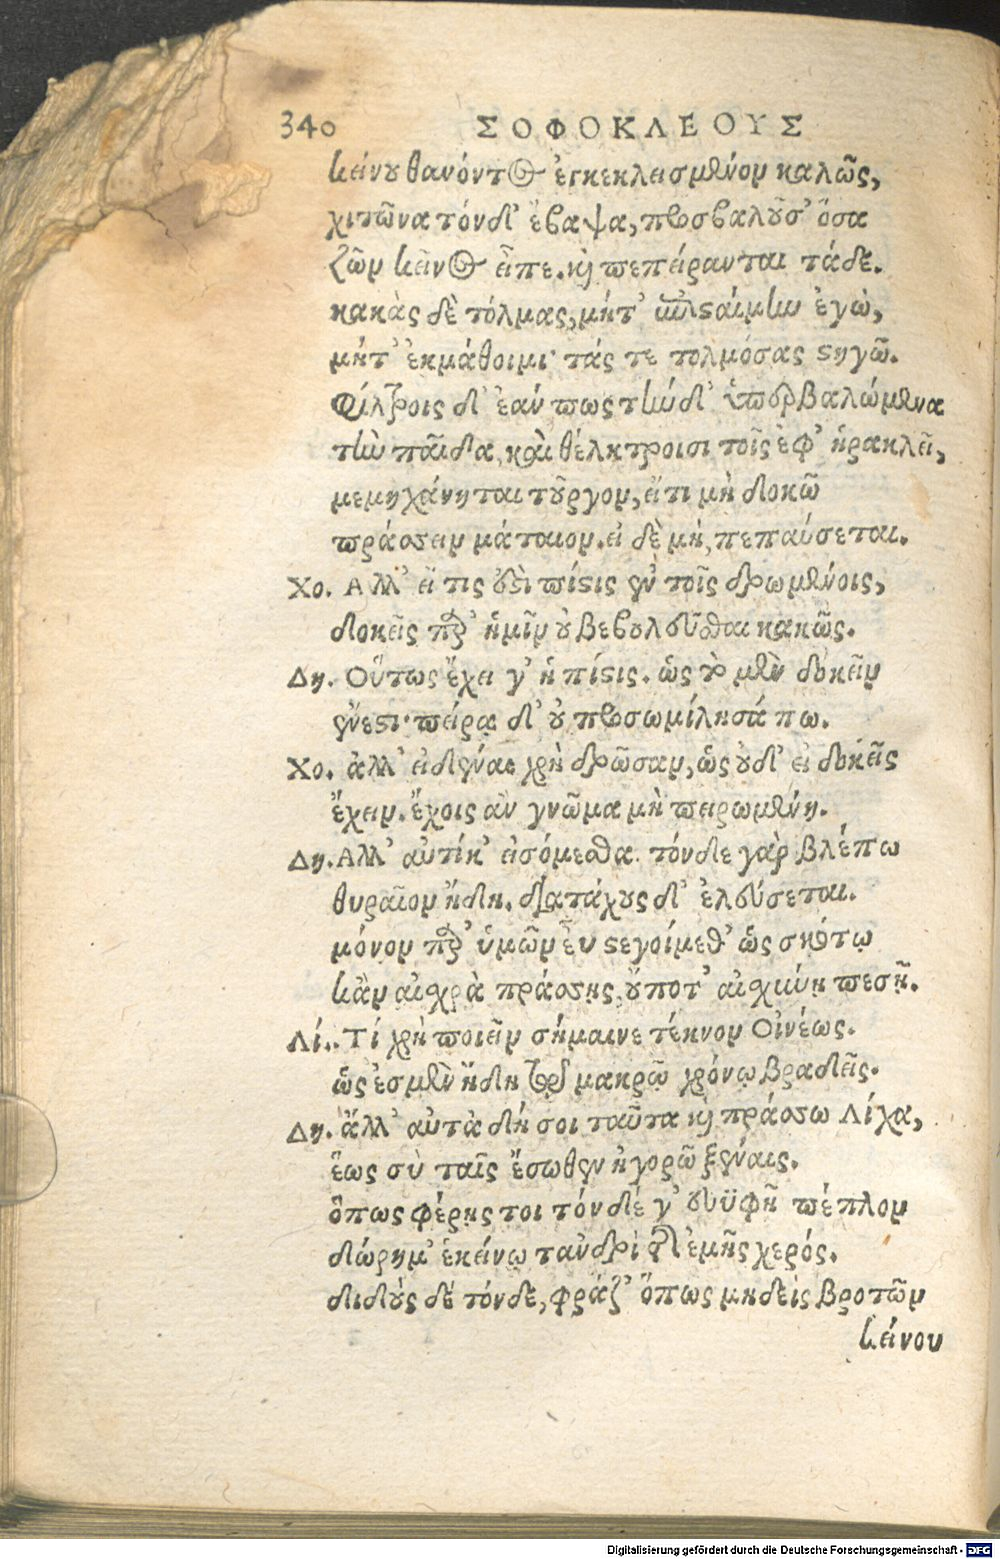 340 ΣΟΦΟΚΛΕΟΥΣ
κείνου θανόντος ἐγκεκλεισμένον καλῶς,
χιτῶνα τόνδ' ἔβαψα, προσβαλοῦσ' ὅσα
ζῶν κεῖνος εἶπε. καὶ πεπείρανται τάδε.
κακὰς δὲ τόλμας, μήτ' ἐπισταίμην ἐγὼ,
μήτ' ἐκμάθοιμι· τάς τε τολμώσας στυγῶ.
Φίλτροις δ' ἐάν πως τήνδ' ὑπερβαλώμεθα
τὴν παῖδα, καὶ θέλκτροισι τοῖς ἐφ' ἡρακλεῖ,
μεμηχάνηται τοὖργον, εἴτι μὴ δοκῶ
πράσσειν μάταιον. εἰ δὲ μή, πεπαύσεται.
Χο. Ἀλλ' εἴ τις ἐστὶ πίστις ἐν τοῖς δρωμένοις,
δοκεῖς παρ' ἡμῖν οὐ βεβουλεῦσθαι κακῶς.
Δη. Οὕτως ἔχει γ' ἡ πίστις. ὡς τὸ μὲν δοκεῖν
ἔνεστι· πείρᾳ δ' οὐ προσωμίλησά πω.
Χο. ἀλλ' εἰδέναι χρὴ δρῶσαν, ὡς οὐδ' εἰ δοκεῖς
ἔχειν. ἔχοις ἂν γνῶμα μὴ πειρωμένη.
Δη. Ἀλλ' αὐτίκ' εἰσόμεσθα. τόνδε γὰρ βλέπω
θυραῖον ἤδη. διατάχους δ' ἐλεύσεται.
μόνον παρ' ὑμῶν εὖ στεγοίμεθ' ὡς σκότῳ
κἂν αἰσχρὰ πράσσῃς, οὔποτ' αἰσχύνῃ πεσῇ.
Λί. Τί χρὴ ποιεῖν σήμαινε τέκνον Οἰνέως.
ὡς ἐσμὲν ἤδη τῷ μακρῷ χρόνῳ βραδεῖς.
Δη. ἀλλ' αὐτὰ δή σοι ταῦτα καὶ πράσσω Λίχα,
ἕως σὺ ταῖς ἔσωθεν ἠγορῶ ξέναις.
ὅπως φέρῃς τοι τόνδε γ' εὐϋφῆ πέπλον
δώρημ' ἐκείνῳ τἀνδρὶ τῆς ἐμῆς χερός.
διδοὺς δέ τόνδε, φράζ' ὅπως μηδεὶς βροτῶν
κείνου
Digitalisierung gefördert durch die Deutsche Forschungsgemeinschaft - DFG